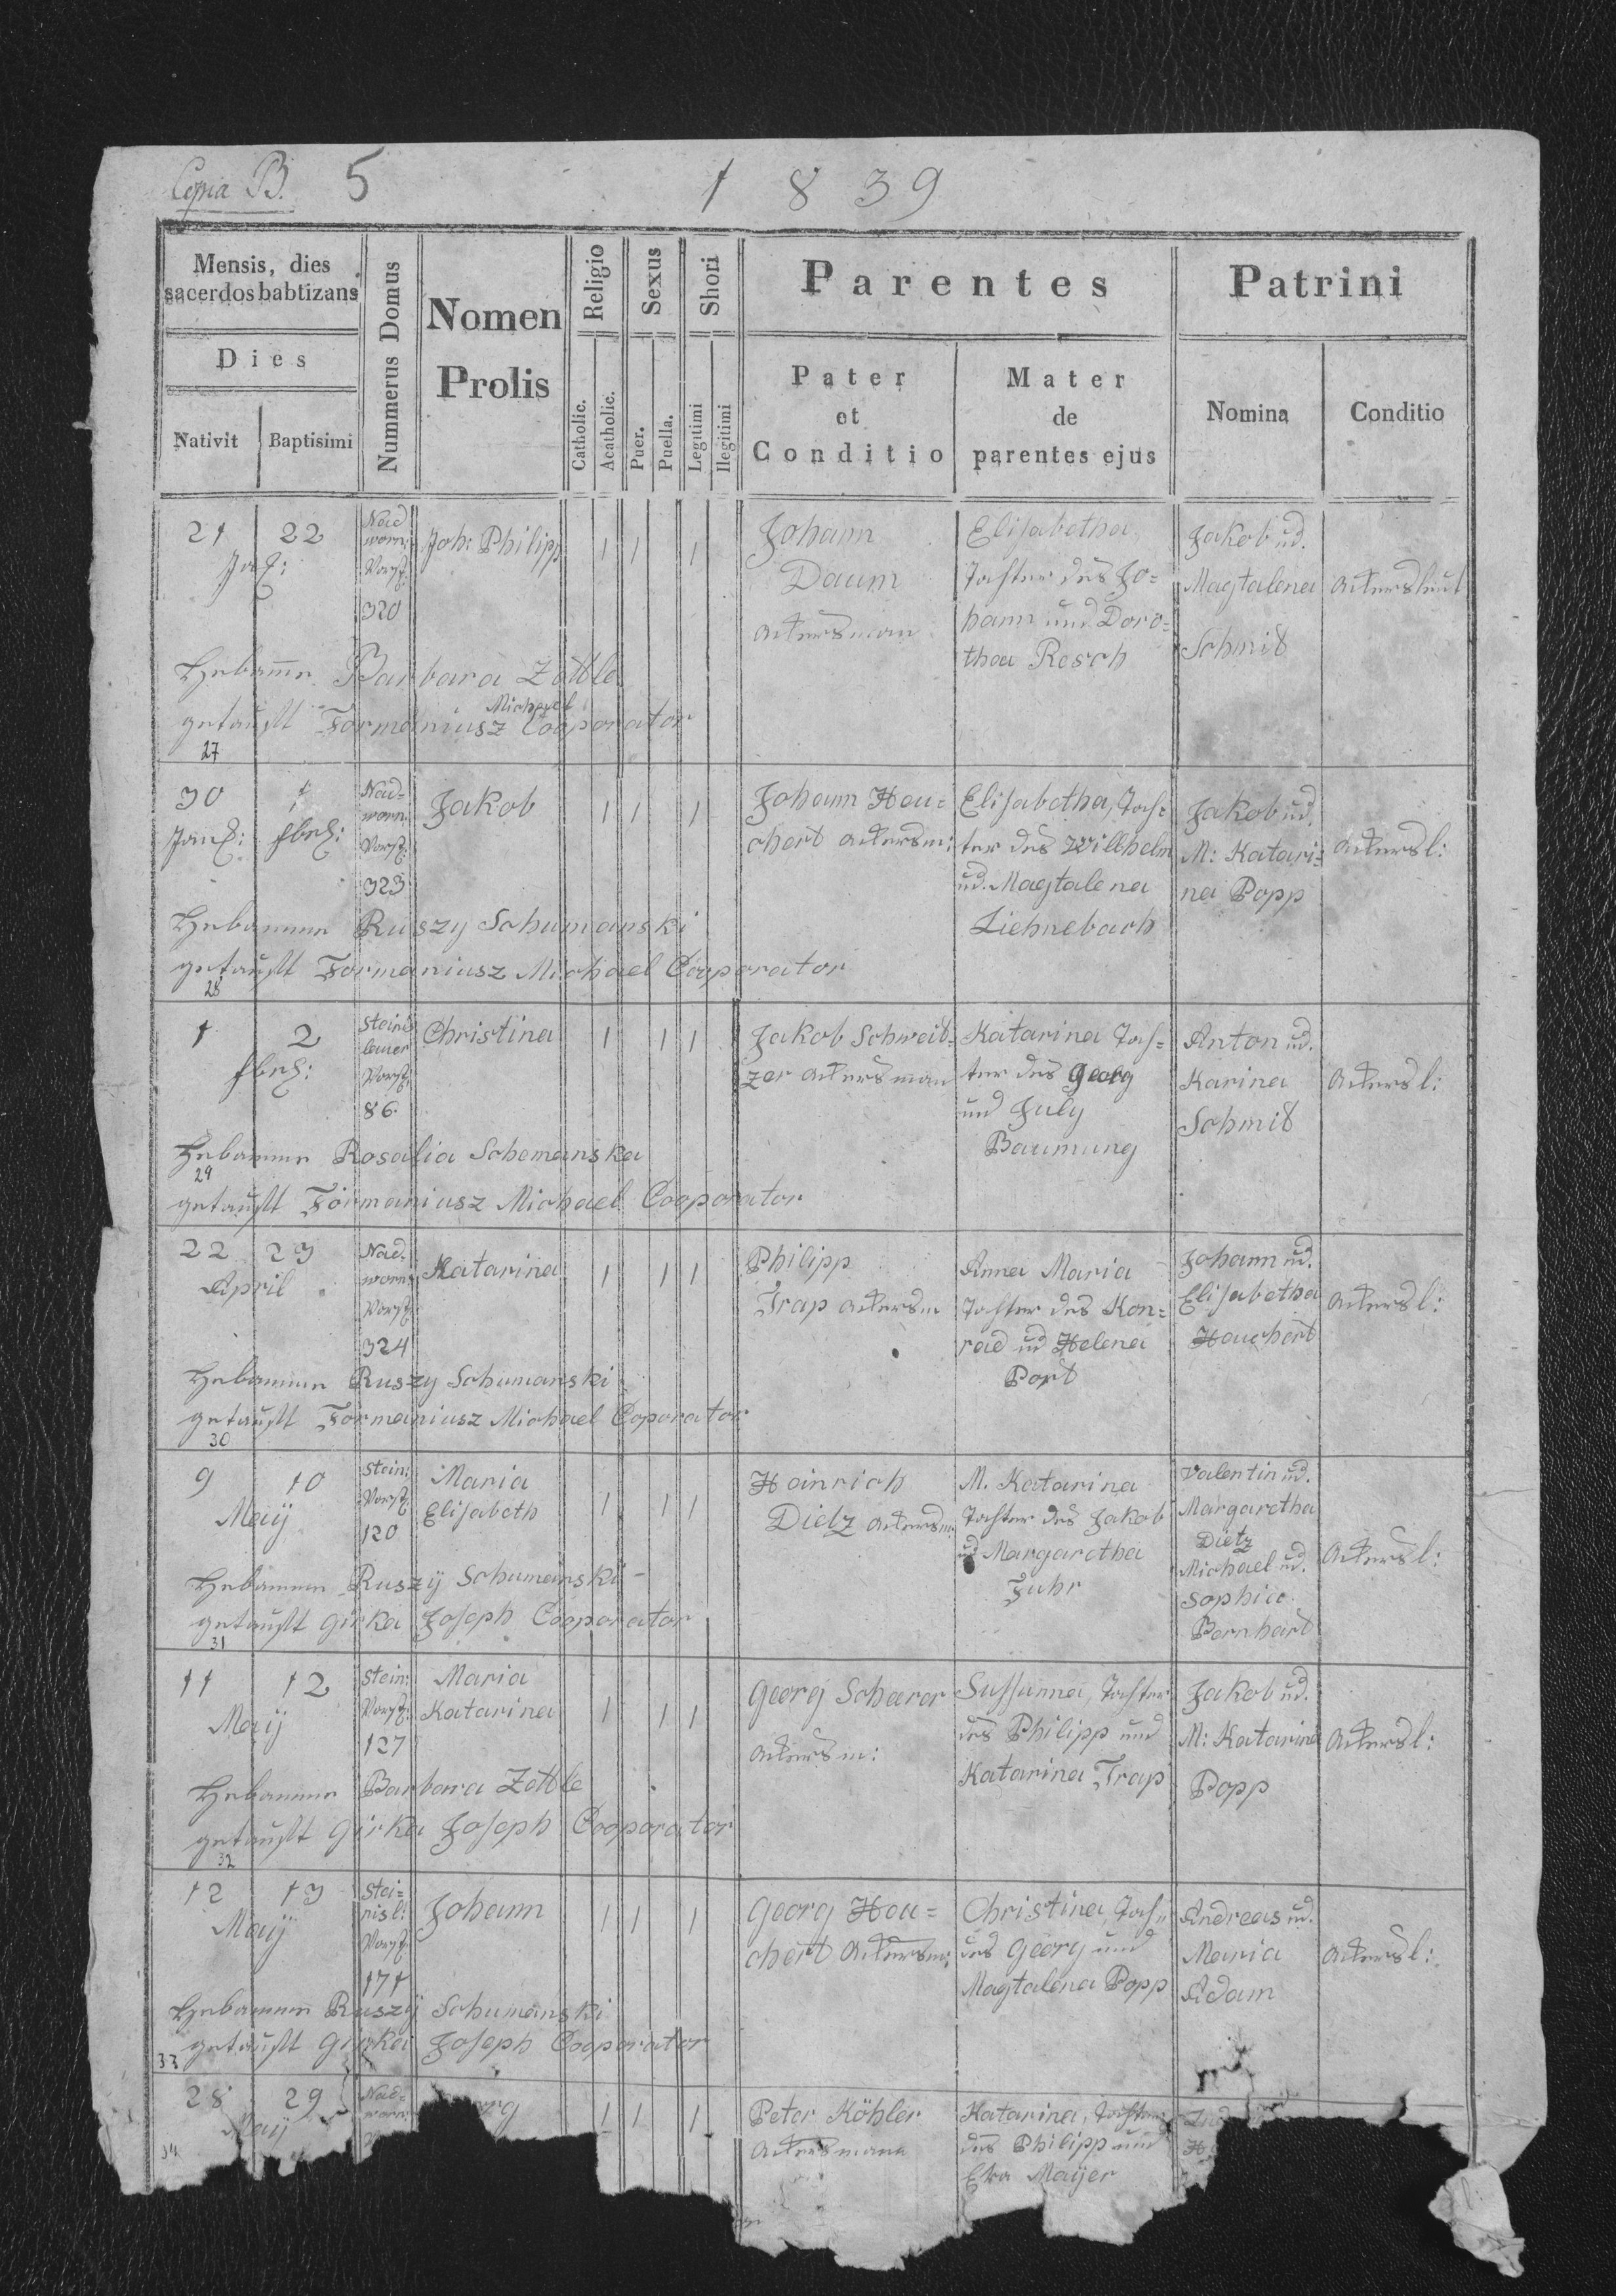 Copia B. 5 1839
Mensis, dies
sacerdos babtizans
Dies
Nativit Baptisimi
Nummerus Domus
Nomen
Prolis
Religio
Catholic.
Acatholic.
Sexus
Puer.
Puella.
Shori
Legitimi
Ilegitimi
Parentes
Pater
et
Conditio
Mater
de
parentes ejus
Patrini
Nomina
Conditio
21 22
320
Joh: Philipp
1 1 1
Johann
Daum
Akersman
Elisabetha
Tochter des Jo=
hann und Doro=
thea Resch
Jakob ud.
Magtalena
Schmid
Akersleut
Hebamme Barbara Zottle
Michael
getauft Formaniusz Cooperator
27
30 1
Jan: Febr:
Nad=
worn:
Vorst:
323
Jakob
1 1 1
Johann Hau=
chert Akersm:
Elisabetha, Toch=
ter des Willhelm
ud. Magtalena
Liehnebach
Jakob ud.
M: Katari=
na Popp
Akersl:
Hebamme Ruszy Schumanski
getauft Formaniusz Michael Cooperator
28
1 2
Febr:
Vorst:
86
Christina
1 1 1
Jakob Schweit=
zer Akersman
Katarina Toch=
ter des Georg
und July
Baumung
Anton ud.
Karina
Schmid
Akersl:
Hebamme Rosalia Schemanska
29
getauft Formaniusz Michael Cooperator
22 23
April
Nad=
worn:
Vorst:
324
Katarina
1 1 1
Philipp
Trap Akersm
Anna Maria
Tochter des Kon=
rad ud Helena
Port
Johann ud.
Elisabetha
Hauchert
Akersl:
Hebamme Ruszy Schumanski
getauft Formaniusz Michael Coperator
30
9 10
Maÿ
Stein:
Vorst:
120
Maria
Elisabeth
1 1 1
Heinrich
Dietz Akersm:
M. Katarina
Tochter des Jakob
ud Margaretha
Fuhr
Valentin ud.
Margaretha
Dietz
Michael ud.
Sophia
Bernhard
Akersl:
Hebamme Ruszÿ Schumanski
getauft Girka Joseph Cooperator
31
11 12
Maÿ
Stein:
Vorst:
127
Maria
Katarina
1 1 1
Georg Scherer
Akersm:
Sussanna, Tochter
des Philipp und
Katarina Trap
Jakob ud.
M: Katarina
Popp
Akersl:
Hebamme Barbara Zottle
getauft Girka Joseph Cooperator
32
12 13
Maÿ
Stei=
nisl:
Vorst:
171
Johann
1 1 1
Georg Hau=
chert Akersm:
Christina, Toch=
des Georg und
Magtalena Popp
Andreas ud.
Maria
Adam
Akersl:
Hebamme Ruszÿ Schumanski
getauft Girka Joseph Cooperator
33
28 29
Maÿ
Nad=
worn:
1 1 1
Peter Köhler
Akersmann
Katarina, Tochter
des Philipp und
Eva Maÿer
34